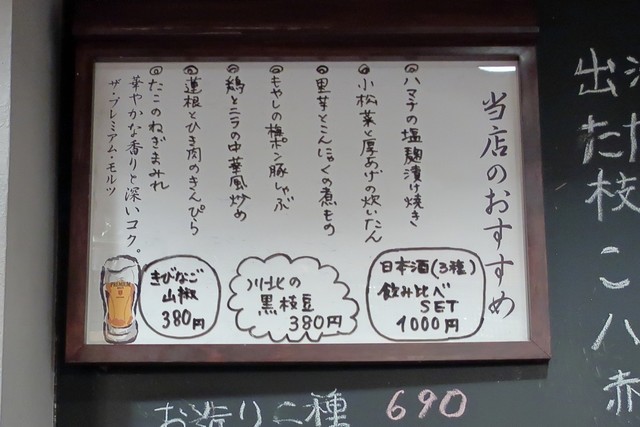 当店のおすすめ
◎ハマチの塩麹漬け焼き
◎小松菜と厚あげの炊いたん
◎里芋とこんにゃくの煮もの
◎もやしの梅ポン豚しゃぶ
◎鶏とニラの中華風炒め
◎蓮根とひき肉のきんぴら
◎たこのねぎまみれ
華やかな香りと深いコク。
ザ・プレミアム・モルツ
日本酒(3種)
飲み比べ
SET
1000円
川北の
黒枝豆
380円
きびなご
山椒
380円
出た枝こハ赤
お造り二種 690